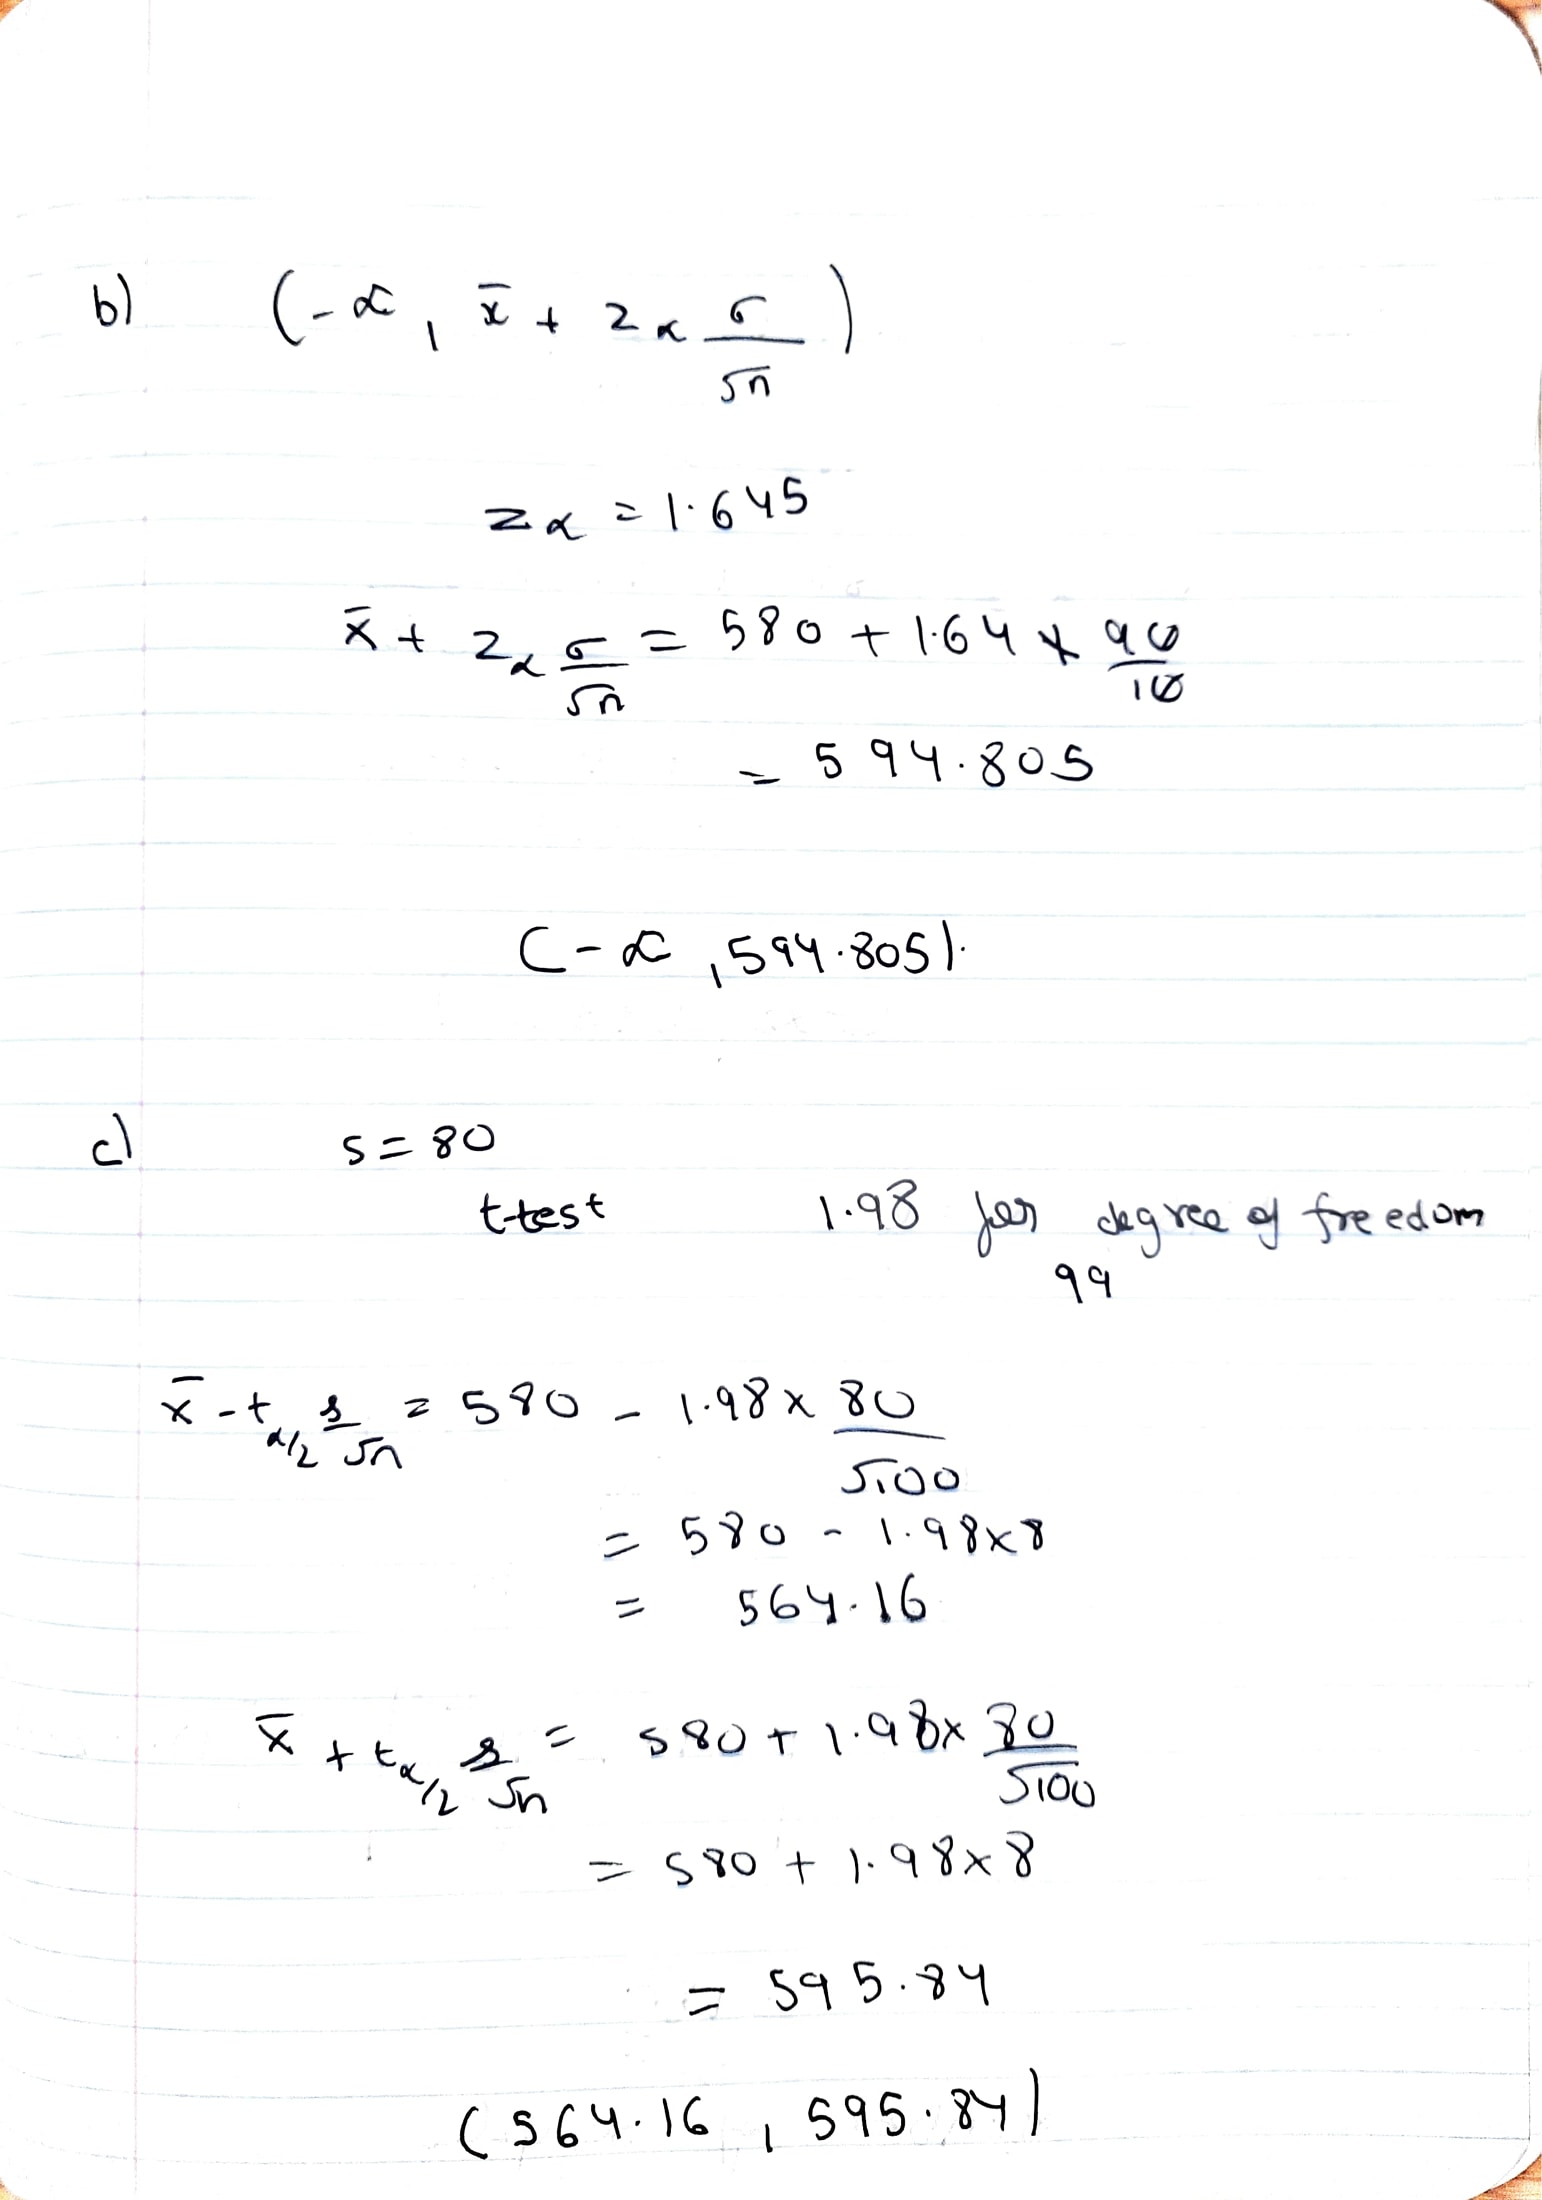 b) (-∝, x̄ + z∝ σ/√n)
z∝ = 1.645
x̄ + z∝ σ/√n = 580 + 1.64 × 90/10
= 594.805
(-∝, 594.805).
c) s = 80
t-test 1.98 for degree of freedom
99
x̄ - t∝/2 s/√n = 580 - 1.98 × 80/√100
= 580 - 1.98×8
= 564.16
x̄ + t∝/2 s/√n = 580 + 1.98× 80/√100
= 580 + 1.98×8
= 595.84
(564.16, 595.84)